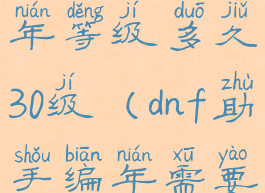 nián děng jí duō jiǔ
年等级多久
jí zhù
30级（dnf助
shǒu biān nián xū yào
手编年需要